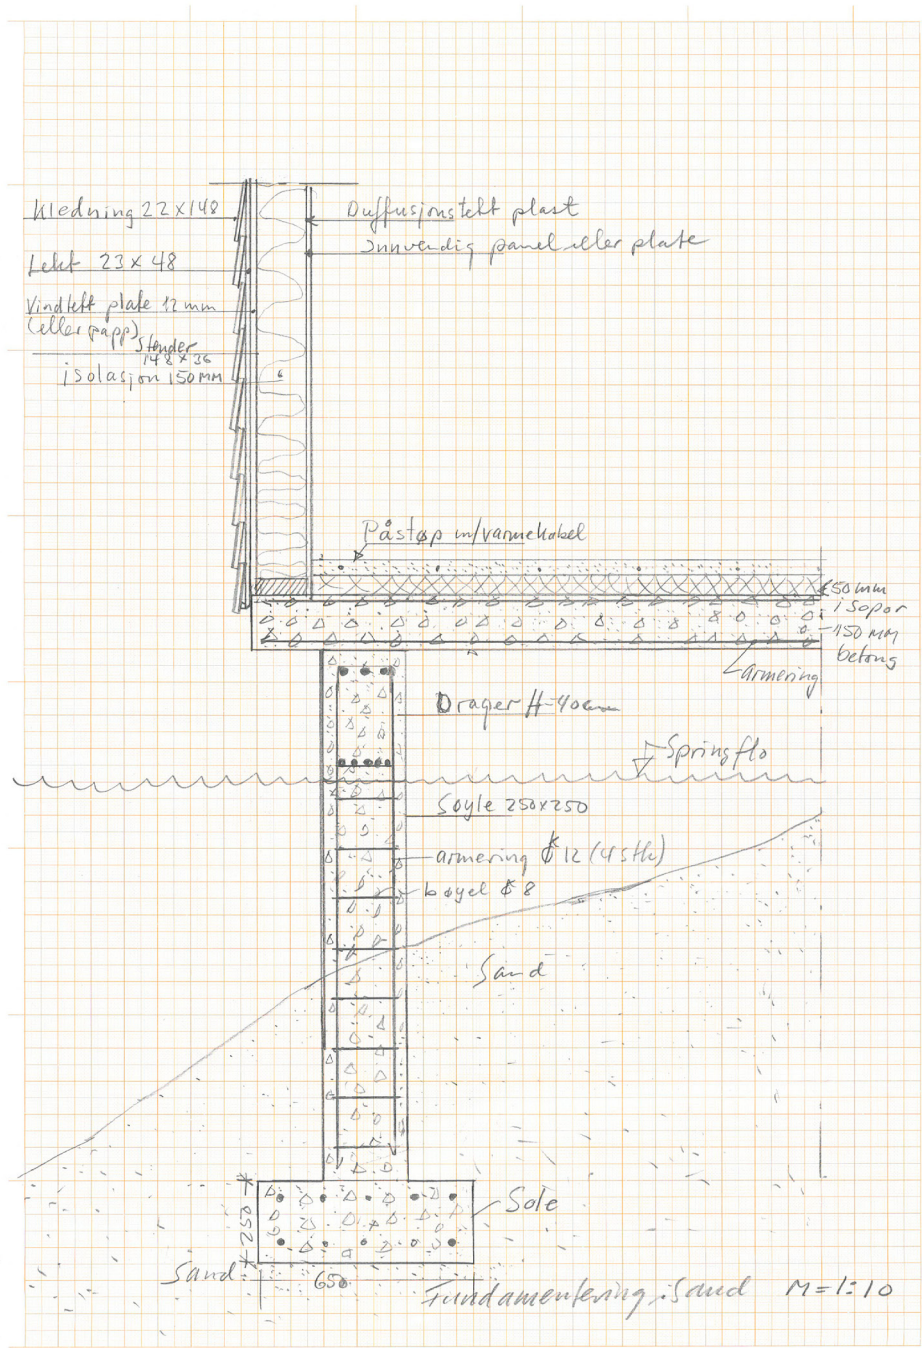 Kledning 22x148
Lekt 23x48
Vindtett plate 12mm
(eller papp)
Stender
148x36
isolasjon 150MM
Duffusjonstett plast
Innvendig panel eller plate
Påstøp m/varmekabel
50mm
isopor
150 MM
betong
armering
Drager H-40cm
Springflo
Søyle 250x250
armering ϕk12 (4 stk)
bøyel ϕk8
Sand
250
Sole
Sand
650
Fundamentering i Sand M=1:10